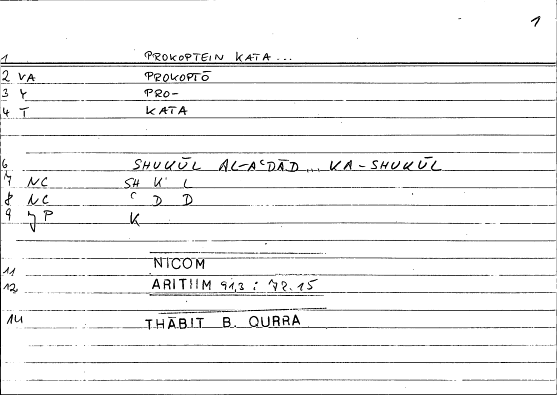 1
1 PROKOPTEIN KATA ...
2 VA PROKOPTŌ
3 Y PRO-
4 T KATA
6 SHUKŪL AL-AʿDĀD ... KA-SHUKŪL
7 NC SH K L
8 NC ʿ D D
9 JP K
11 NICOM
12 ARITHM 91,3 : 78.15
14 THĀBIT B. QURRA